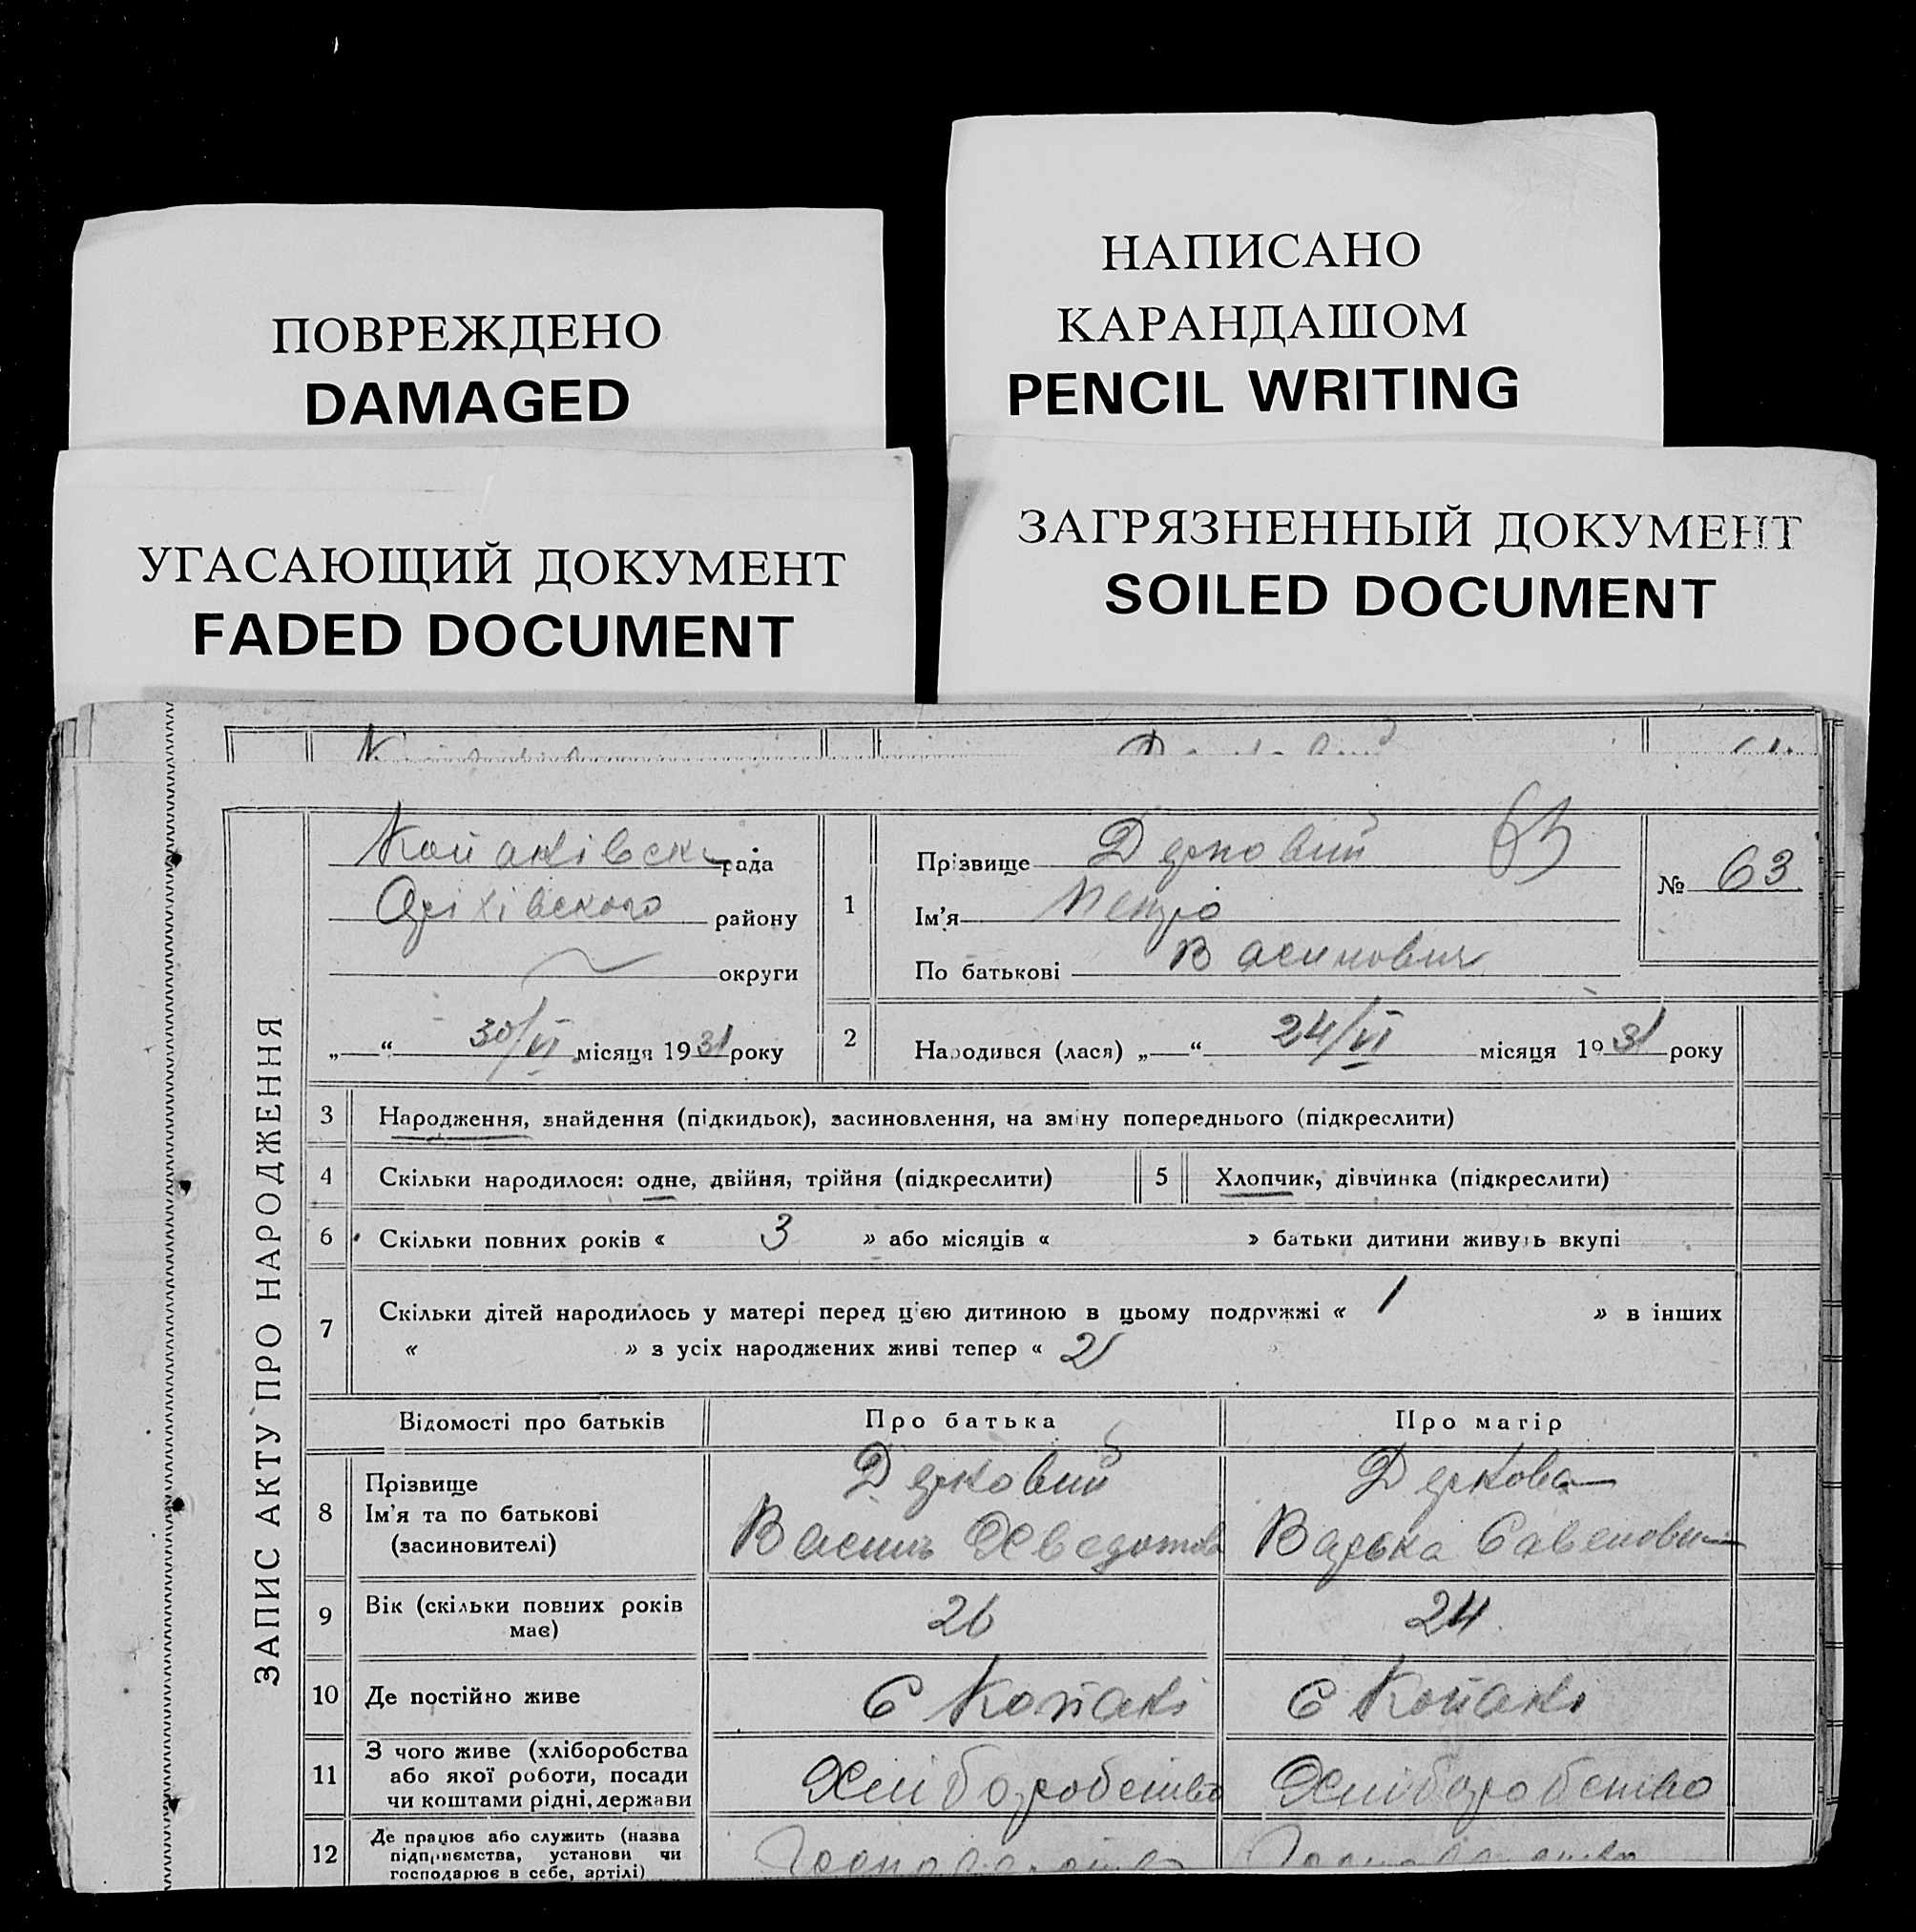 ПОВРЕЖДЕНО
DAMAGED
НАПИСАНО
КАРАНДАШОМ
PENCIL WRITING
УГАСАЮЩИЙ ДОКУМЕНТ
FADED DOCUMENT
ЗАГРЯЗНЕННЫЙ ДОКУМЕНТ
SOILED DOCUMENT
ЗАПИС АКТУ ПРО НАРОДЖЕННЯ
Копанівська рада
Оріхівського району
округи
„ “ 30/VI місяця 1931 року
1 Прізвище Дерковий 63
Ім'я Петро
По батькові Васильович
№ 63
2 Народився (лася) „ “ 24/VI місяця 1931 року
3 Народження, знайдення (підкидьок), засиновлення, на зміну попереднього (підкреслити)
4 Скільки народилося: одне, двійня, трійня (підкреслити) 5 Хлопчик, дівчинка (підкреслити)
6 Скільки повних років « 3 » або місяців « » батьки дитини живуть вкупі
7 Скільки дітей народилось у матері перед цією дитиною в цьому подружжі « 1 » в інших
« » з усіх народжених живі тепер « 2
Відомості про батьків Про батька Про матір
8 Прізвище Дерковий Деркова
Ім'я та по батькові Василь Хведотов Варька Савеловн
(засиновителі)
9 Вік (скільки повних років має) 26 24
10 Де постійно живе С Копані С Копані
11 З чого живе (хліборобства або якої роботи, посади чи коштами рідні, держави Хліборобство Хліборобство
12 Де працює або служить (назва підприємства, установи чи господарює в себе, артілі)